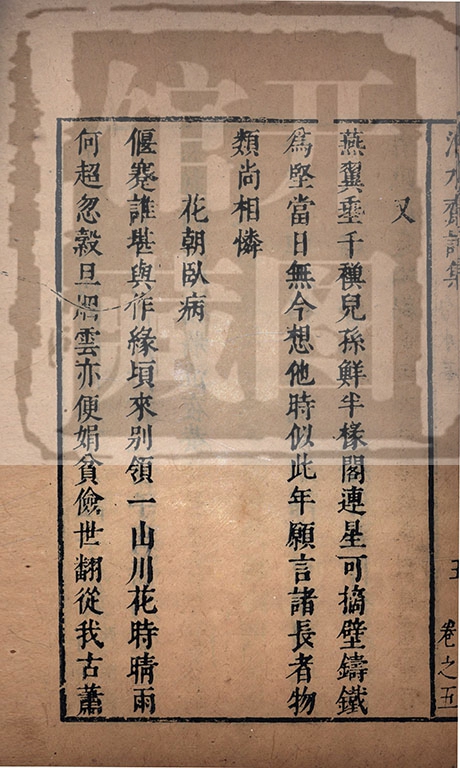 齋詩集
卷之五
五
又
燕翼垂千禩兒孫鮮半椽閣連星可摘壁鑄鐵
爲堅當日無今想他時似此年願言諸長者物
類尚相憐
花朝臥病
偃蹇誰堪與作緣頃來別領一山川花時晴雨
何超忽穀旦烟雲亦便娟貧儉世翻從我古蕭